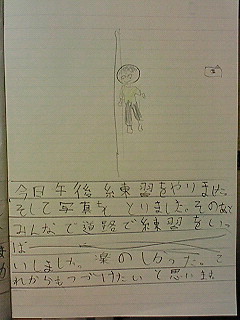 今日午後練習をやりました。
そして写真をとりました。そのあと
みんなで道路で練習をいっ
ぱ
いしました。楽のしかった。こ
れからもつづけたいと思います。